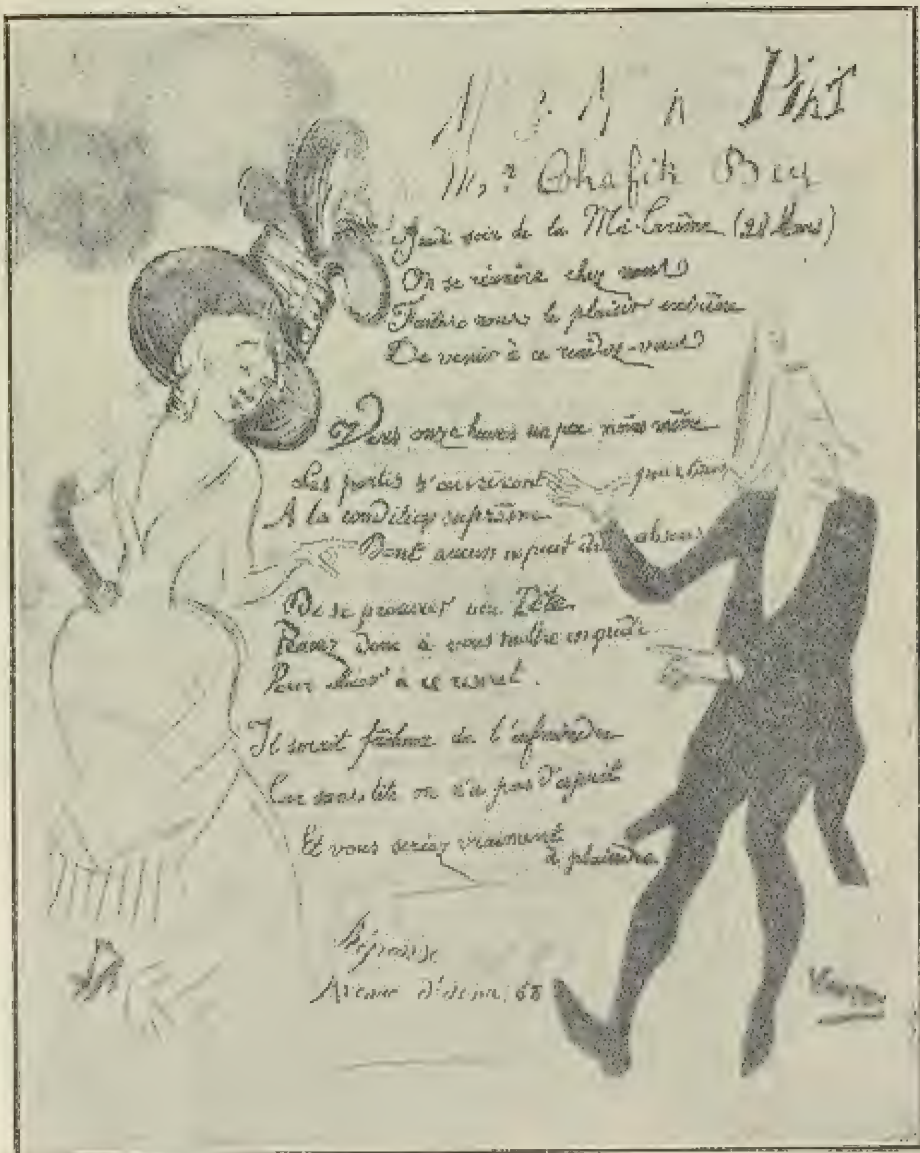 Mr Chafik Bey
Jeudi soir de la Mi-Carême (28 Mars)
On se réunira chez nous
Faites nous le plaisir extrême
De venir à ce rendez-vous
Vers onze heures un peu même
Les portes s'ouvriront pour tous
A la condition suprême
Dont aucun absous
De se procurer une Tête
Pensez donc à vous mettre en quête
Pour à ce
Il serait fâcheux de l'enfreindre
Car sans tête on n'a pas d'esprit
Et vous seriez vraiment
à plaindre
Réponse
Avenue d'Iéna, 68